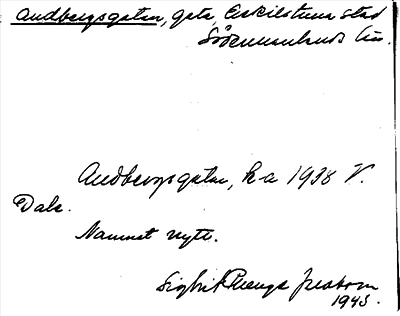 Audbergsgatan, gata, Eskilstuna stad
Södermanlands län.
Audbergsgatan, ka 1938 V.
Dale.
Namnet nytt.
Sigbrit Plenge Jacobson
1943.